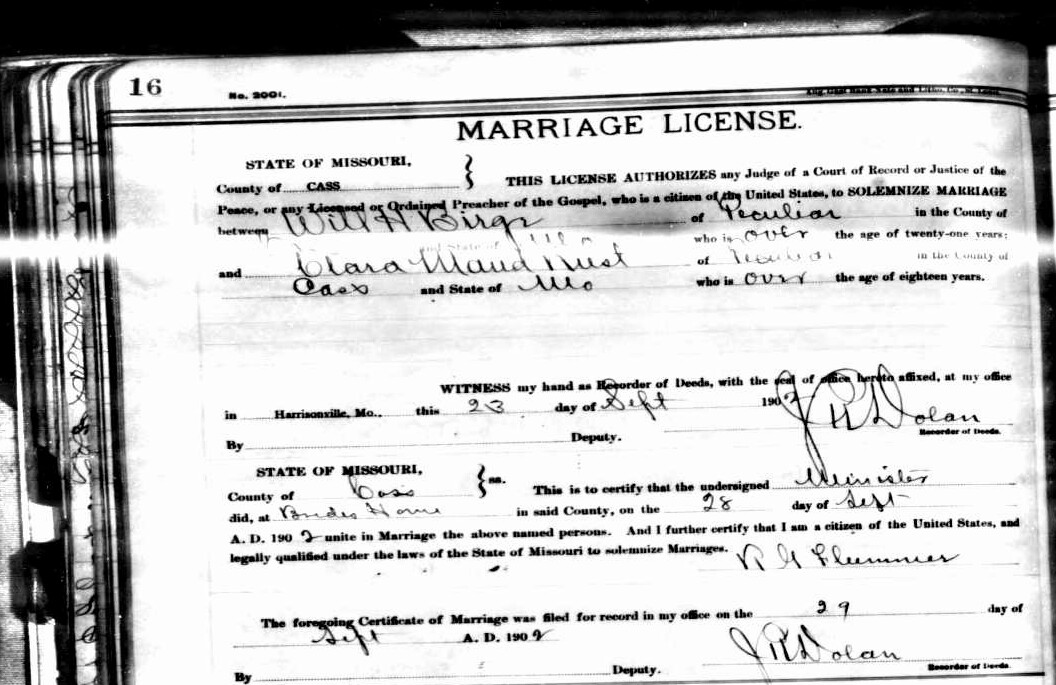 16
No. 2001.
MARRIAGE LICENSE.
STATE OF MISSOURI,
County of CASS
THIS LICENSE AUTHORIZES any Judge of a Court of Record or Justice of the
Peace, or any Licensed or Ordained Preacher of the Gospel, who is a citizen of the United States, to SOLEMNIZE MARRIAGE
between Will H of Peculiar in the County of
and State of Mo who is over the age of twenty-one years;
and Clara Maud Rust of Peculiar in the County of
Cass and State of Mo who is over the age of eighteen years.
WITNESS my hand as Recorder of Deeds, with the seal of office hereto affixed, at my office
in Harrisonville, Mo., this 23 day of Sept 1902
J R Dolan
By Deputy. Recorder of Deeds.
STATE OF MISSOURI,
County of Cass ss. This is to certify that the undersigned Minister
did, at Brides Home in said County, on the 28 day of Sept
A. D. 1902 unite in Marriage the above named persons. And I further certify that I am a citizen of the United States, and
legally qualified under the laws of the State of Missouri to solemnize Marriages.
The foregoing Certificate of Marriage was filed for record in my office on the 29 day of
Sept A. D. 1902
J R Dolan
By Deputy. Recorder of Deeds.